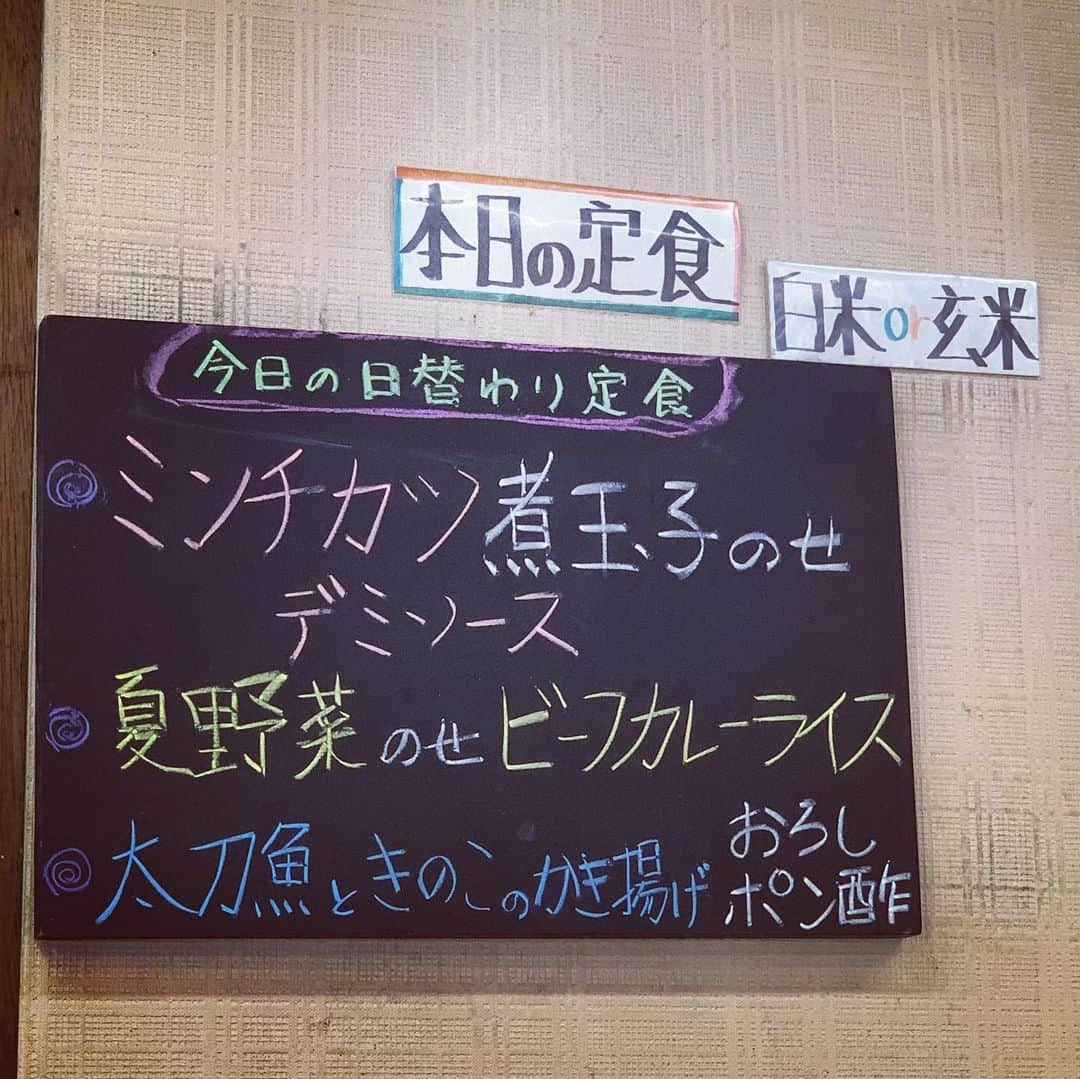 本日の定食
白米or玄米
今日の日替わり定食
ミンチカツ煮玉子のせ
デミソース
夏野菜のせビーフカレーライス
太刀魚ときのこのかき揚げ
おろし
ポン酢